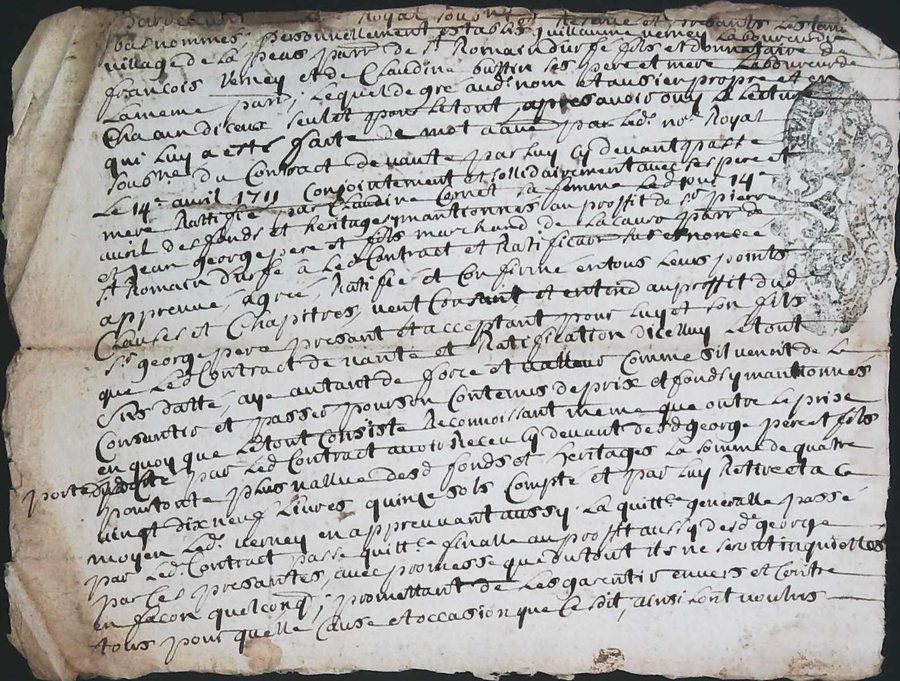 Pardevant Royal soubsné et presants les temoins
bas nommes, personnellement establis guillaume verney laboureur du
village de la parr de St Romain durfe fils et donnataire de
françois verney et de Claudine buttin ses pere et mere laboureur de
la meme parr, lequel de gre aud. nom et aussi en propre et en
chacun diceux seul et pour le tout, apres avoir ouy la lecture
qui luy a este faite de mot a par led. nore Royal
soubsne du Contract de vante par luy cy devant passe
le 14e avril 1711 Conjointement et sollidairement avec ses pere et
mere Rattifie par Claudine Cornet sa femme led jour 14e
avril des fonds et heritages y mantionnes au proffit de sr pierre
et Jean george pere et fils marchand de parr de
St Romain durfe à led Contract et Ratification sus enoncée
appreuvé, agrée, Ratifie et Confirmé en tous leurs points
Clauses et Chapitres, veut Consent et entend au proffit dud
sr george pere presant et acceptant pour luy et son fils
que led Contract de vante et Ratification dicelluy le tout
sus datté, aye autant de force et valleur Comme sil venoit de le
Consantir et passer pour son Contenus de prix et fonds y mantionnés
en quoy que le tout Consiste Reconnoissant meme que outre le prise
porté par led Contract avoir Receu cy devant desd george pere et fils
pour toute plus vallue desd fonds et heritages la somme de quatre
vingt dix neuf livres quinze sols Compté et par luy Retiré et a ce
moyen led. verney en appreuvant aussy la quittce generalle passé
par led. Contract passe quittce finalle au proffit aussy desd. george
par ces presantes, avec promesse que du tout ils ne seront inquiettés
en façon quelconq, promettant de les garentir envers et Contre
tous pour quelle Cause et occasion que ce soit, ainsi lont voulus